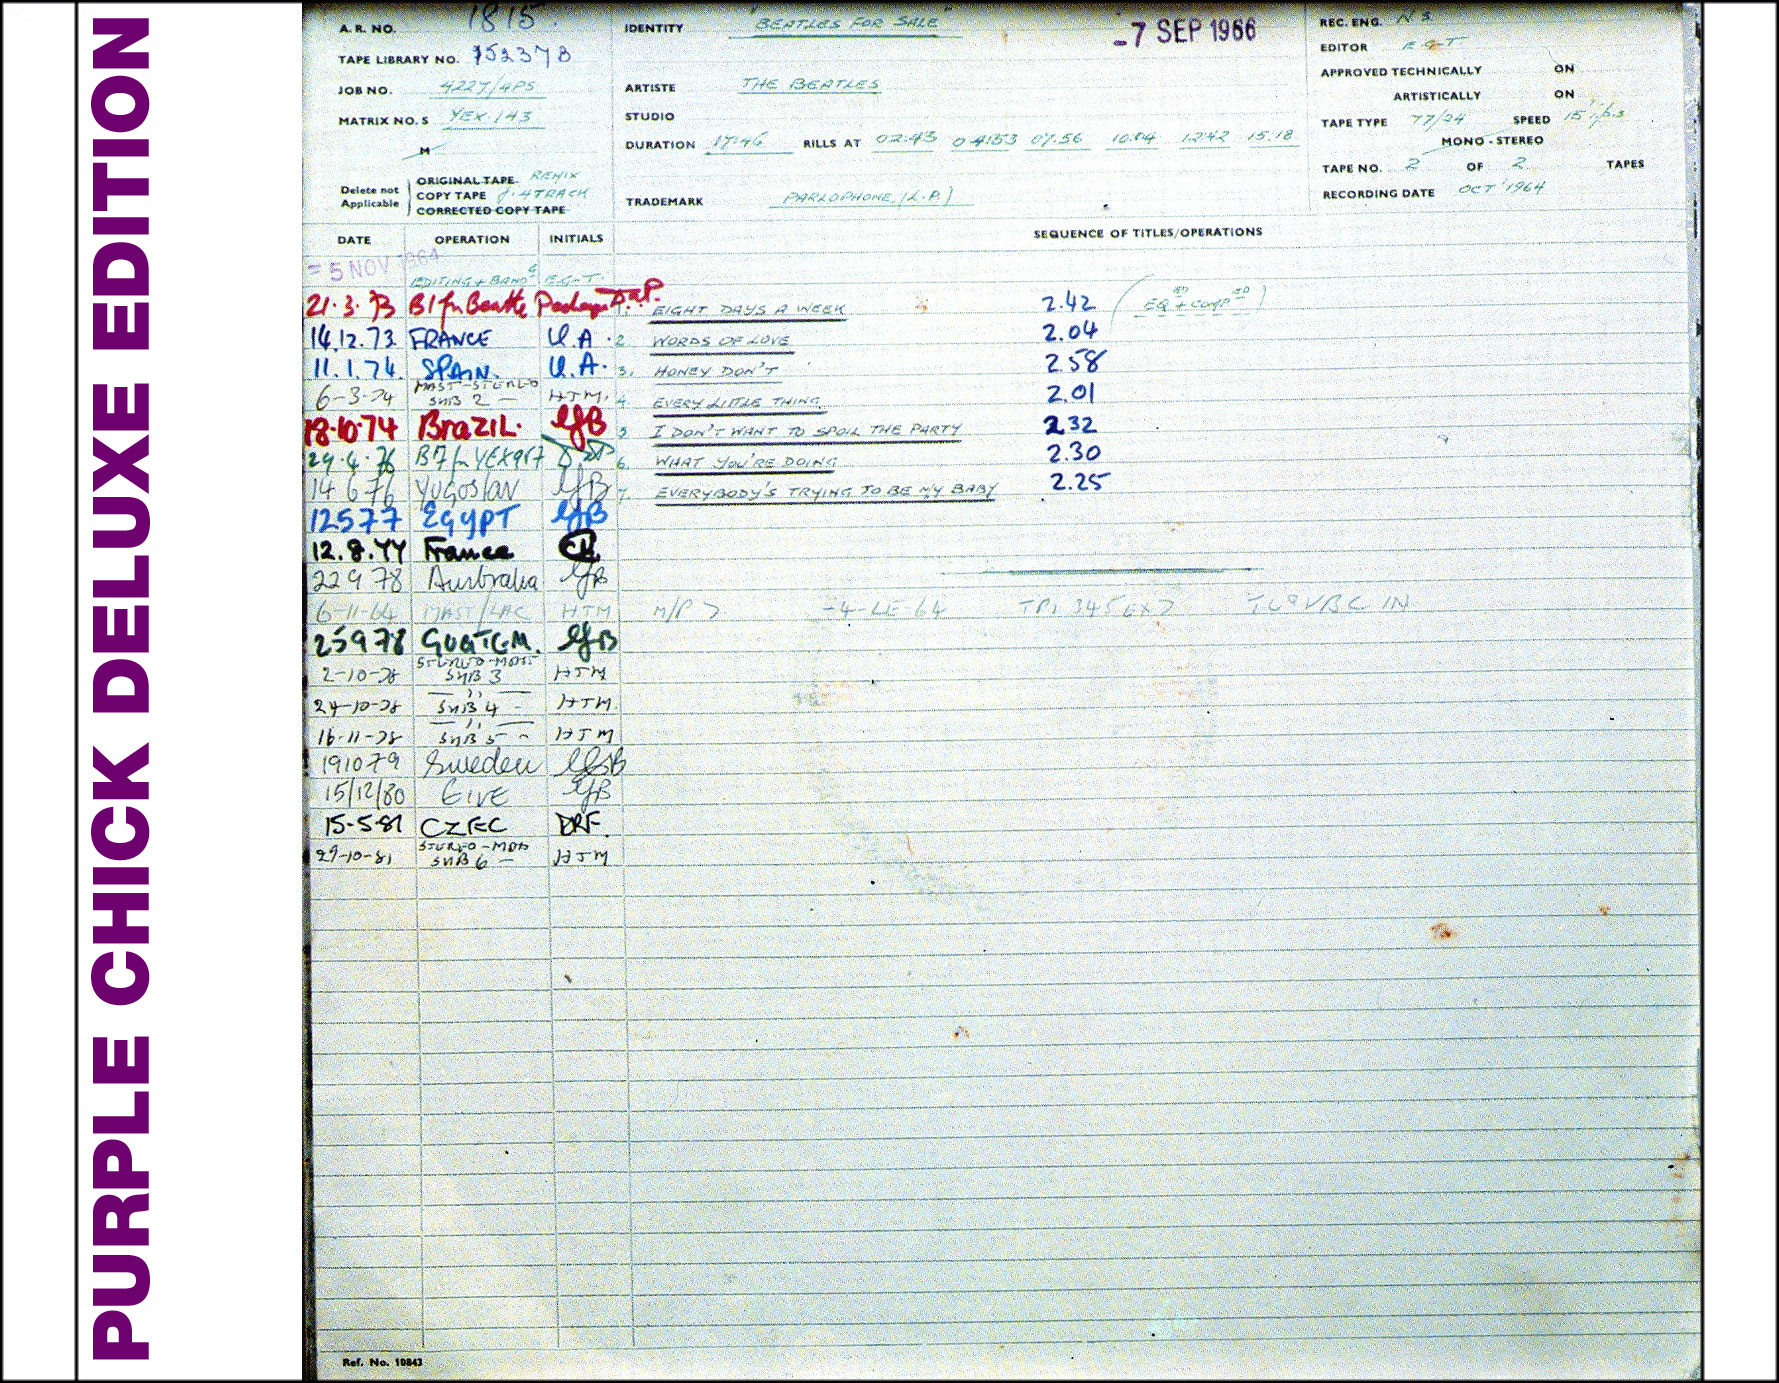 PURPLE CHICK DELUXE EDITION
A. R. NO. 1815.
TAPE LIBRARY NO. 152378
JOB NO. 4227/APS
MATRIX NO. S YEX.143
M
Delete not Applicable
ORIGINAL TAPE REMIX
COPY TAPE 4 TRACK
CORRECTED COPY TAPE
IDENTITY "BEATLES FOR SALE"
-7 SEP 1966
ARTISTE THE BEATLES
STUDIO
DURATION 17.46 RILLS AT 02.43 04.53 07.56 10.04 12.42 15.18
TRADEMARK PARLOPHONE (L.P.)
REC. ENG. N S.
EDITOR E G-T.
APPROVED TECHNICALLY ON
ARTISTICALLY ON
TAPE TYPE 77/24 SPEED 15 i.p.s
MONO - STEREO
TAPE NO. 2 OF 2 TAPES
RECORDING DATE OCT 1964
DATE OPERATION INITIALS SEQUENCE OF TITLES/OPERATIONS
= 5 NOV 1964 EDITING + BAND G E.G-T.
21.3.73 B1 fr Beatle Package D&P. 1. EIGHT DAYS A WEEK 2.42 (EQED + COMPED)
14.12.73 FRANCE U.A. 2 WORDS OF LOVE 2.04
11.1.74. SPAIN. U.A. 3. HONEY DON'T 2.58
6-3-74 MAST-STEREO SUB 2 — HTM. 4. EVERY LITTLE THING 2.01
18.10.74 BRAZIL. GB 5 I DON'T WANT TO SPOIL THE PARTY 2 32
29.4.76 B7 fr YEX967 6. WHAT YOU'RE DOING 2.30
14 6 76 YUGOSLAV GB 7. EVERYBODY'S TRYING TO BE MY BABY 2.25
12577 EGYPT GB
12.8.77 France
22 9 78 Australia GB
6-11-64 MAST/LAC HTM M/P > -4-LE-64
25978 GUATEM. GB
2-10-78 STEREO-MAST SUB 3 HTM
24-10-78 — " — SUB 4 - HTM.
16-11-78 — " — SUB 5 - HTM
191079 Sweden GB
15/12/80 EIRE GB
15-5-81 CZEC DRF.
29-10-81 STEREO-MAS SUB 6 — HTM
Ref. No. 10843